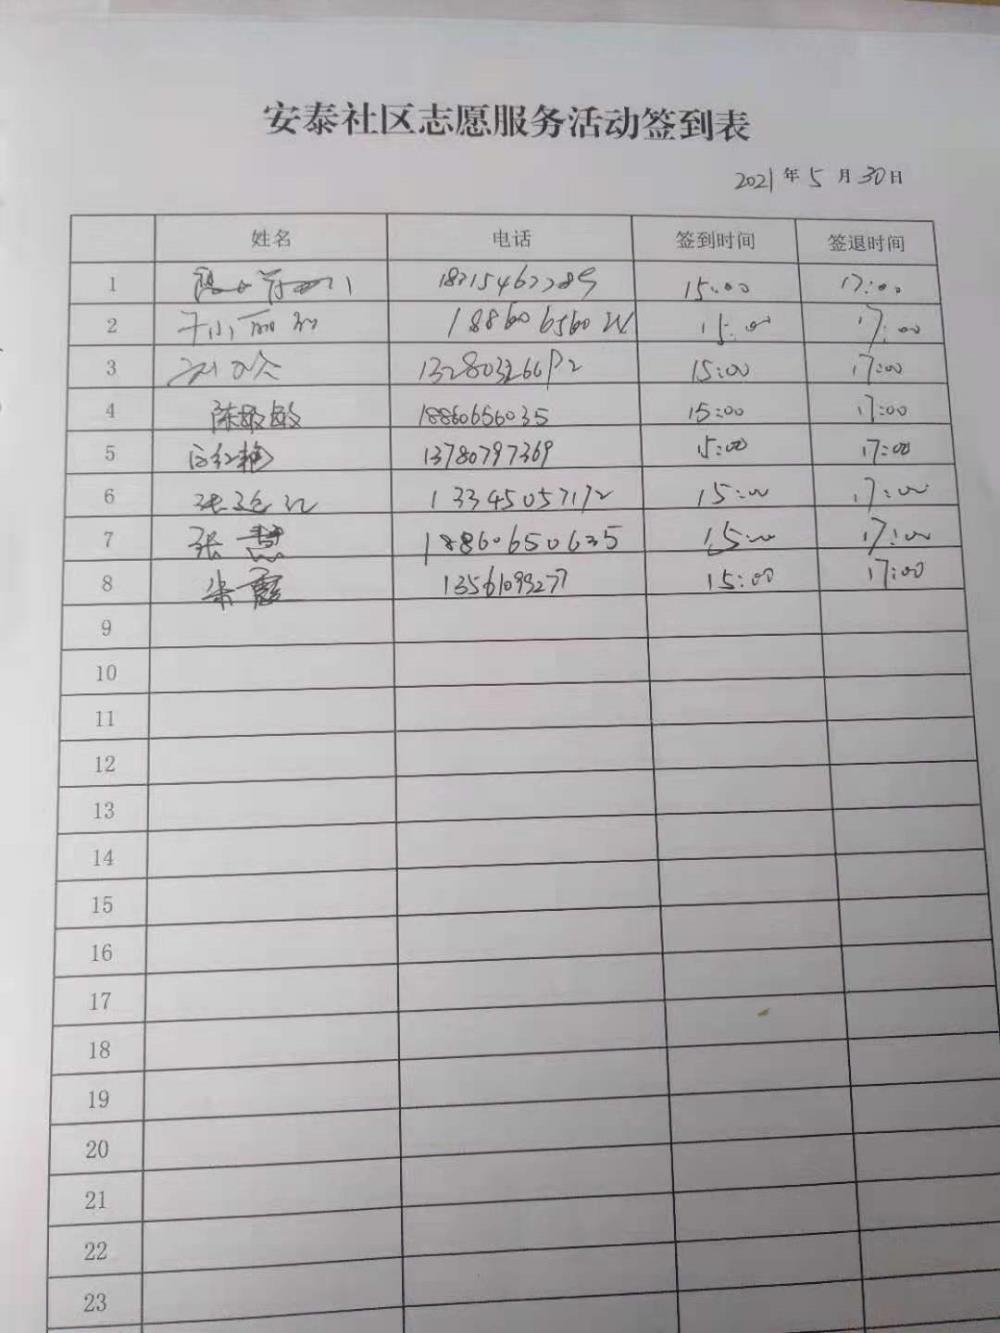 安泰社区志愿服务活动签到表
2021年5月30日
姓名 电话 签到时间 签退时间
1 15:00 17:00
2 15:00 17:00
3 15:00 17:00
4 陈敏敏 18860656035 15:00 17:00
5 白红艳 13780797369 15:00 17:00
6 13345057172 15:00 17:00
7 张慧 18860650635 15:00 17:00
8 朱霞 13561099277 15:00 17:00
9
10
11
12
13
14
15
16
17
18
19
20
21
22
23